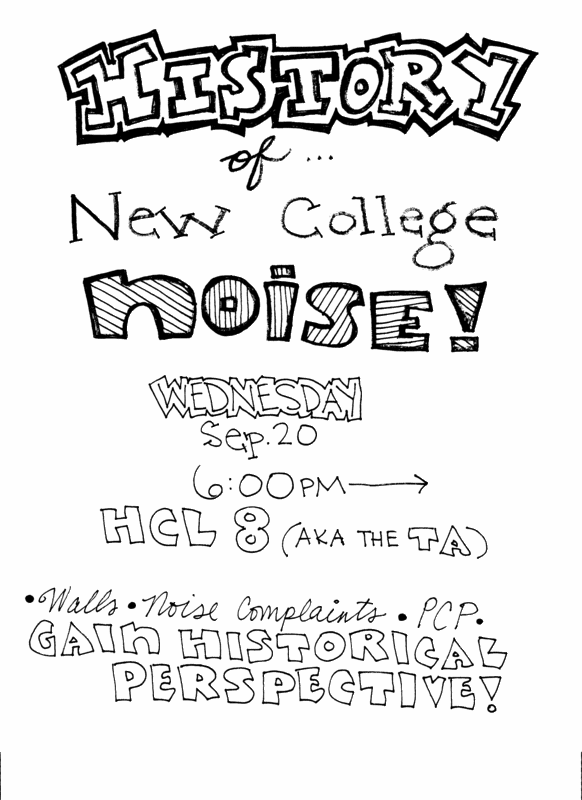 HISTORY
of...
New College
noise!
WEDNESDAY
Sep. 20
6:00PM →
HCL 8 (AKA THE TA)
• Walls • Noise Complaints • PCP.
GAIN HISTORICAL
PERSPECTIVE!